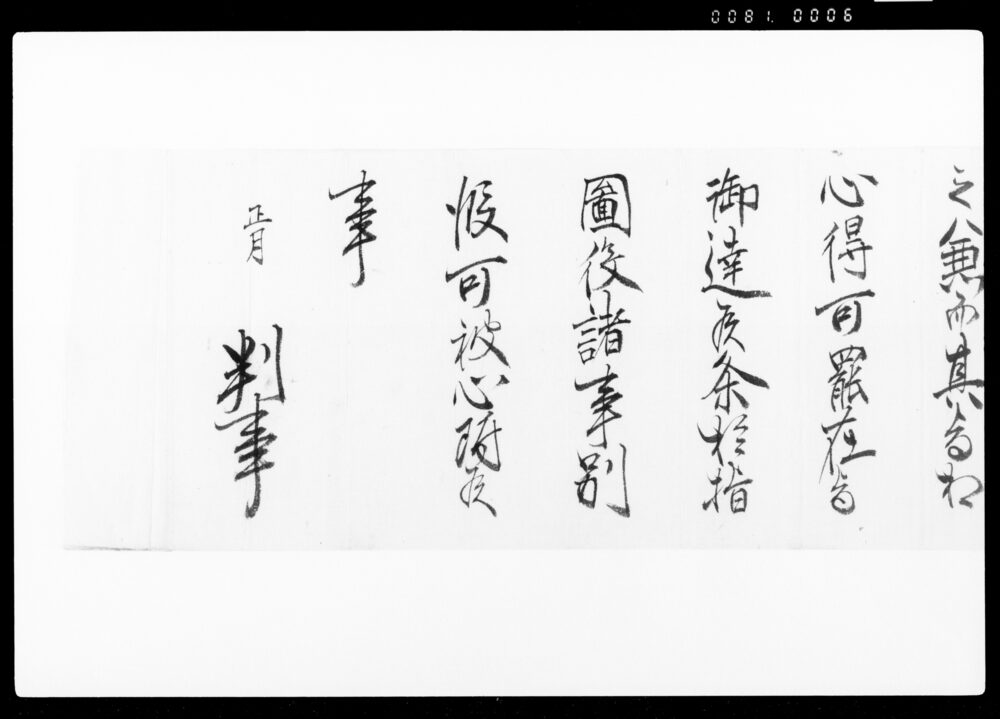 0081. 0006
之候兼而其旨相
心得可罷在旨
御達候条於指
圖役諸事別
假可被心附候
事
正月
判事